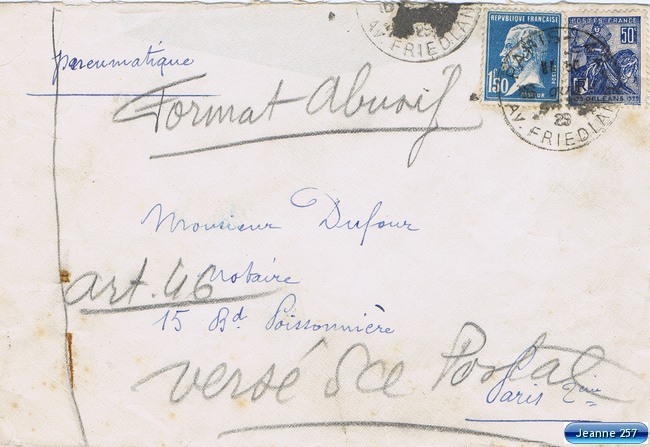 pneumatique
Format Abusif
REPUBLIQUE FRANÇAISE
1F50
POSTES FRANCE
50c
ORLEANS
PARIS
AV. FRIEDLAND
29
AV. FRIEDLAND
29
Monsieur Dufour
Notaire
art. 46
15 Bd Poissonnière
versé Sce Postal
Paris 2eme
Jeanne 257